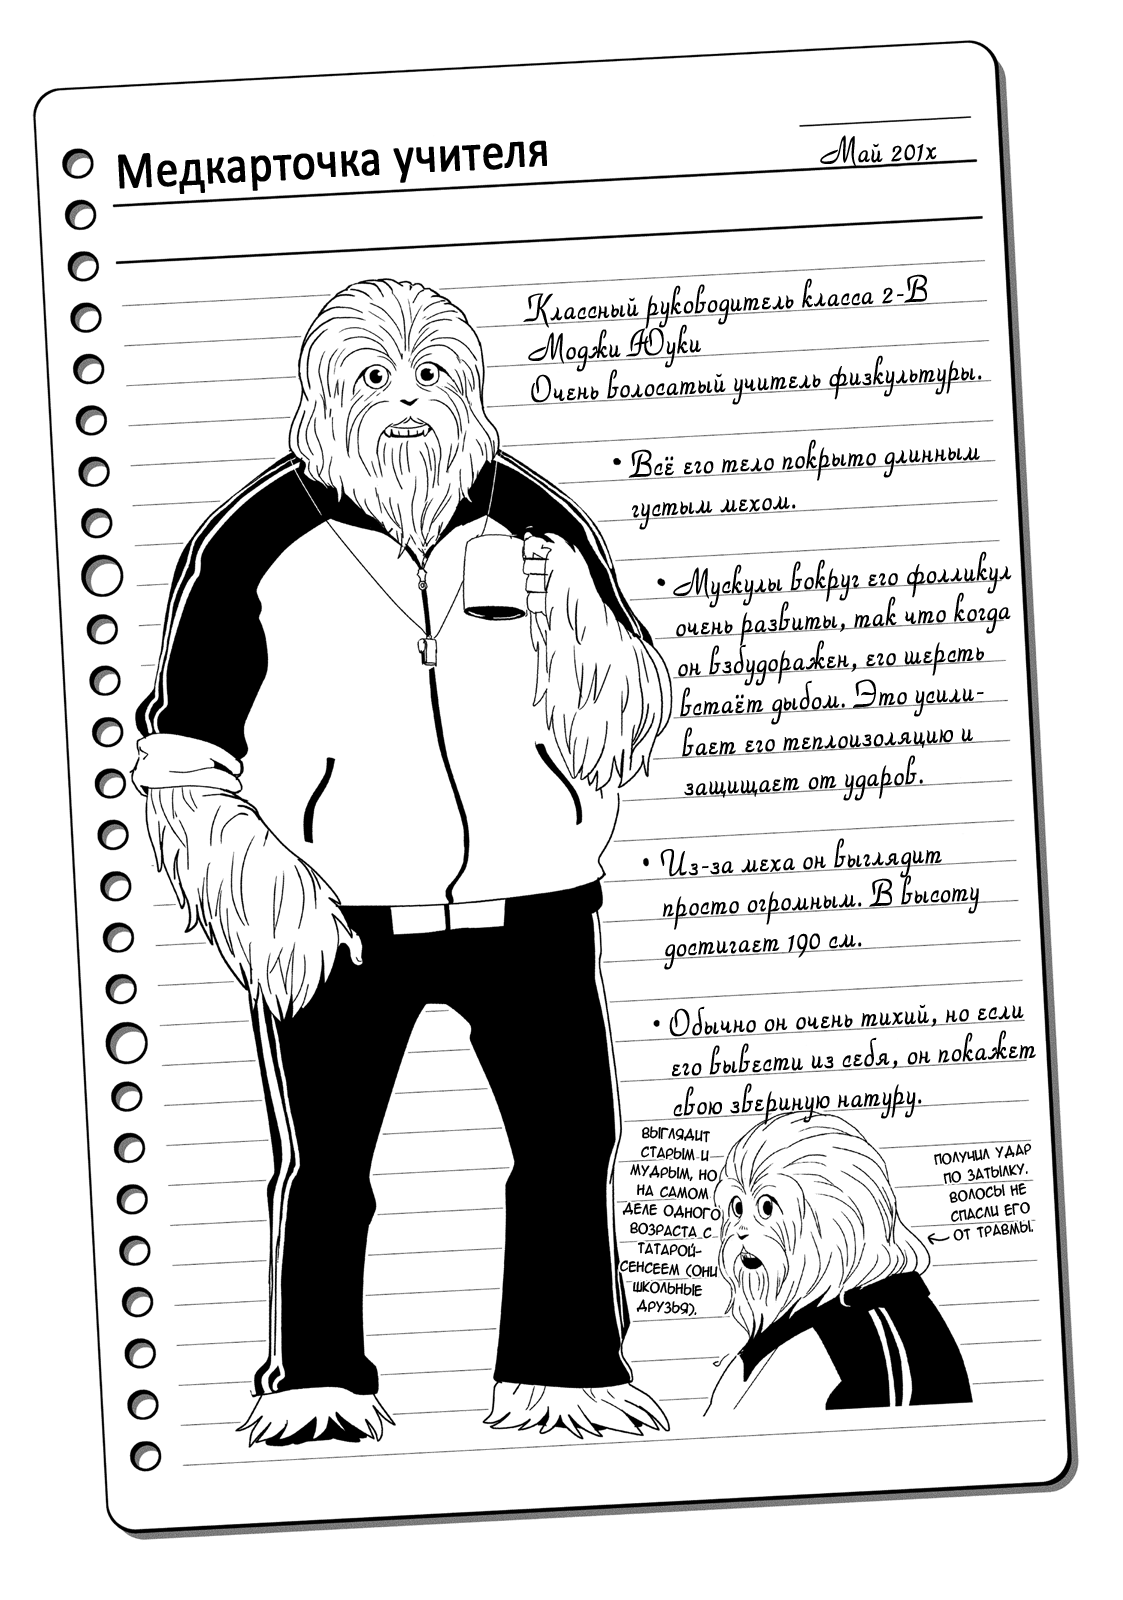 Медкарточка учителя
Май 201х
Классный руководитель класса 2-В
Моджи Юуки
Очень волосатый учитель физкультуры.
• Всё его тело покрыто длинным
густым мехом.
• Мускулы вокруг его фолликул
очень развиты, так что когда
он взбудоражен, его шерсть
встаёт дыбом. Это усили-
вает его теплоизоляцию и
защищает от ударов.
• Из-за меха он выглядит
просто огромным. В высоту
достигает 190 см.
• Обычно он очень тихий, но если
его вывести из себя, он покажет
свою звериную натуру.
ВЫГЛЯДИТ
СТАРЫМ И
МУДРЫМ, НО
НА САМОМ
ДЕЛЕ ОДНОГО
ВОЗРАСТА С
ТАТАРОЙ-
СЕНСЕЕМ (ОНИ
ШКОЛЬНЫЕ
ДРУЗЬЯ).
ПОЛУЧИЛ УДАР
ПО ЗАТЫЛКУ.
ВОЛОСЫ НЕ
СПАСЛИ ЕГО
ОТ ТРАВМЫ.